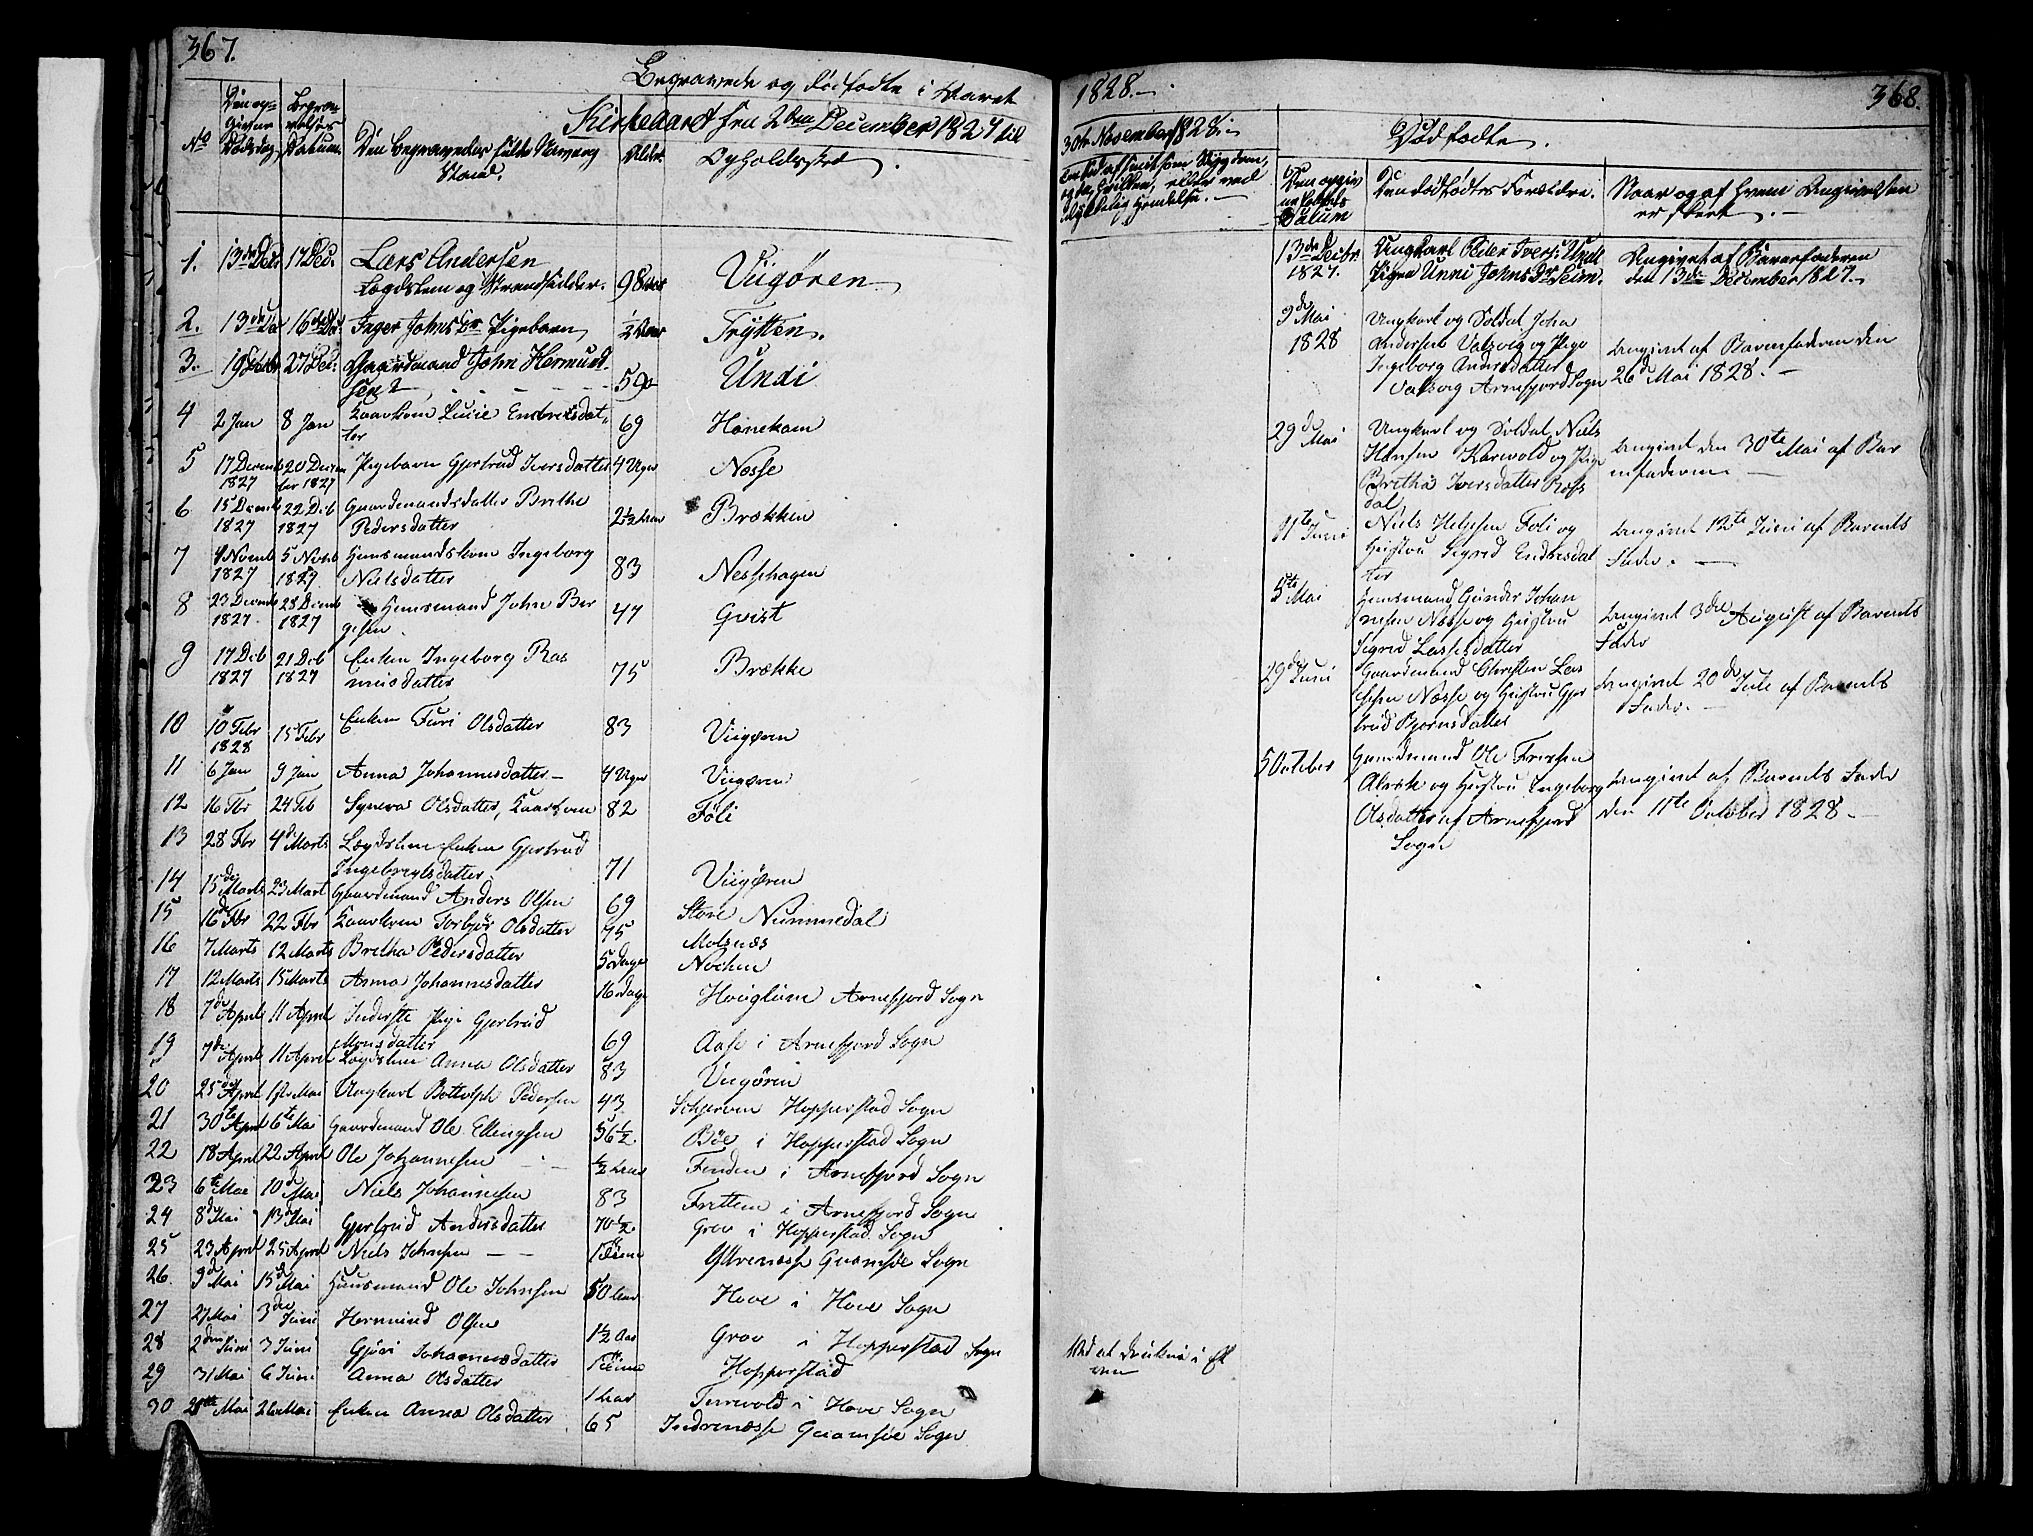 367.
Begravede og dødfødte i Aaret
Kirkeaaret fra 2den December 1827 til
No
Den op-
givne
Dødsdag
Begra-
velses
Datum.
Den Begravedes fulde Navn og
Stand.
Alder.
Opholdssted
1. 13de Decbr 17 Dec. Lars Andersen
Lægdslem og Strandsidder. 98 Aar Viigøren
2. 13de Dec 16 Dec Inger Johnsdr Pigebarn ½ Aar Frytten.
3. 19 Decbr 27 Dec. Gaardmand John Hermund-
sen 59 Undi
4 2 Jan 8 Jan Kaarkone Lucie Endresdat-
ter 69 Hanekam
5 17 Decemb 20 Decem Pigebarn Gjertrud Iversdatter 4 Uger Næsse
1827 ber 1827
6 15 Decemb 22 Dcb Gaardmandsdatter Brithe
1827 1827 Pedersdatter 2½ Aar Brækken
7 1 Novemb 5 Novbr Huusmandskone Ingeborg
1827 1827. Nielsdatter 83 Nessehagen
8 23 Decemb 28 Decemb Huusmand John Bør
1827. 1827 gesen 47 Gvist
9 17 Dcb 21 Dcb Enken Ingeborg Ras
1827 1827 musdatter 75 Brække
10 10 Febr 15 Febr Enken Turi Olsdatter 83 Viigøren
1828
11 6 Jan 9 Jan Anna Johannesdatter – 4 Uger Viigøren
12 16 Fbr 24 Feb Syneva Olsdatter, Kaarkone 82 Føli
13 28 Fbr 4de Marts Lægdslem Enken Gjertrud
Ingebregtsdatter 71 Viigøren
14 15de Marts 23 Mart Gaardmand Anders Olsen 69 Store Nummedal
15 16de Fbr 22 Fbr Kaarkone Torbjør Olsdatter 75 Molnæs
16 7 Marts 12 Marts Bretha Pedersdatter 5 Dage Nochen
17 12 Marts 15 Marts Anna Johannesdatter 16 Dage Houglum Arnefjord Sogn
18 7de April 11 April Inderste Pige Gjertrud
Monsdatter 69 Aase i Arnefjord Sogn
19 7de April 11 April Lægdslem Anna Olsdatter 83 Viigøren
20 25de April 1ste Mai Ungkarl Bottolph Pedersen 43 Schjerven Hopperstad Sogn
21 30te April 6te Mai Gaardmand Ole Ellingsen 56½ Bøe i Hopperstad Sogn
22 18 April 22 April Ole Johannesen ½ Aar Finden i Arnefjord Sogn
23 6te Mai 10de Mai Niels Johannesen 83 Fretten i Arnefjord Sogn
24 8de Mai 13de Mai Gjertrud Andersdatter 70½ Grov i Hopperstad Sogn
25 23 April 25 April Niels Johnsen – – 1 Time Ydrenæsse Qvamsøe Sogn
26. 9de Mai 15de Mai Huusmand Ole Johnsen 50 Aar Hove i Hove Sogn
27 27 Mai 3die Juni Hermund Olsen 1½ Aar Grov i Hopperstad Sogn
28 2den Juni 3 Juni Gjøri Johannesdatter 1 Time Hopperstad
29 31 Mai 6 Juni Anna Olsdatter 1 Aar Turvold i Hove Sogn
30 21de Mai 26 Mai Enken Anna Olsdatter 65 Indrenæsse Qvamsøe Sogn
1828.–
368.
30te November 1828.–
Dødfødte.
Den opgiv
ne Fødsels
Datum
Den Dødfødtes Forældre.
Naar og af hvem Angivelsen
er skeet. –
13de Decbr. 1827. Ungkarl Peder Ivers: Undi
Pigen Unni Johnsdr Seim.
Angivet af Barnefaderen
den 13de December 1827.–
9de Mai 1828 Ungkarl og Soldat John
Andersen Valsvig og Pige
Ingeborg Andersdatter
Valsvig Arnefjord Sogn
Angivet af Barnefaderen den
26de Mai 1828. –
29de Mai Ungkarl og Soldat Niels
Hansen Karvold og Pige
Bretha Iversdatter Røfs
dal
Angivet den 30te Mai af Bar
nefaderen –
11te Juni Niels Helgesen Føli og
Hustru Sigrid Endresdat
ter
Angivet 12te Juni af Barnets
Fader. –
5te Mai Huusmand Gunder Johan
nesen Næsse og Hustru
Sigrid Lassesdatter
Angivet 3die August af Barnets
Fader
29de Juni Gaardmand Christen Las
sesen Næsse og Hustru Gjer
trud Bjørnsdatter
Angivet 20de Juli af Barnets
Fader. –
5 October Gaardmand Ole Iversen
og Hustru Ingeborg
Olsdatter af Arnefjord
Sogn
Angivet af Barnets Fader
den 11te October 1828. –
Ved at drukne i El
ven